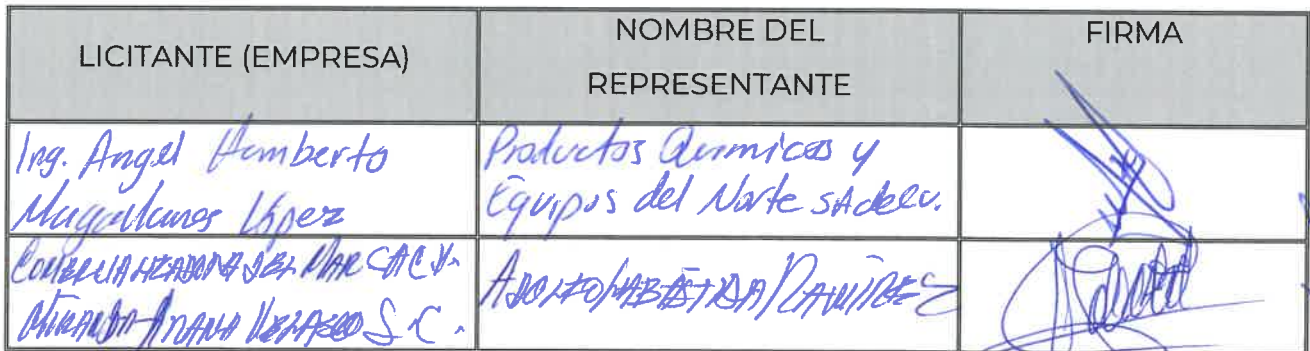 LICITANTE (EMPRESA)
NOMBRE DEL
REPRESENTANTE
FIRMA
Ing. Angel Humberto
Magallanes López
Productos Quimicos y
Equipos del Norte SA de CV.
COMERCIALIZADORA DEL MAR
S.C.
ADOLFO RAMIREZ